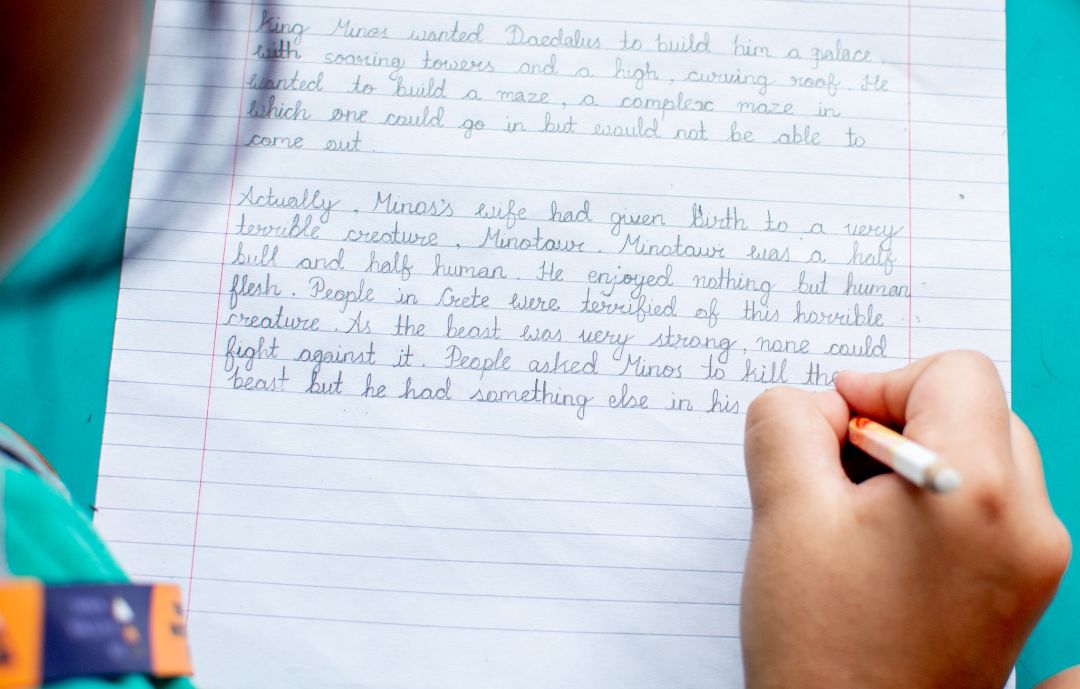 King Minos wanted Daedalus to build him a palace,
with soaring towers and a high, curving roof. He
wanted to build a maze, a complex maze in
which one could go in but would not be able to
come out.
Actually, Minos's wife had given birth to a very
terrible creature, Minotaur. Minotaur was a half
bull and half human. He enjoyed nothing but human
flesh. People in Crete were terrified of this horrible
creature. As the beast was very strong, none could
fight against it. People asked Minos to kill the
beast but he had something else in his